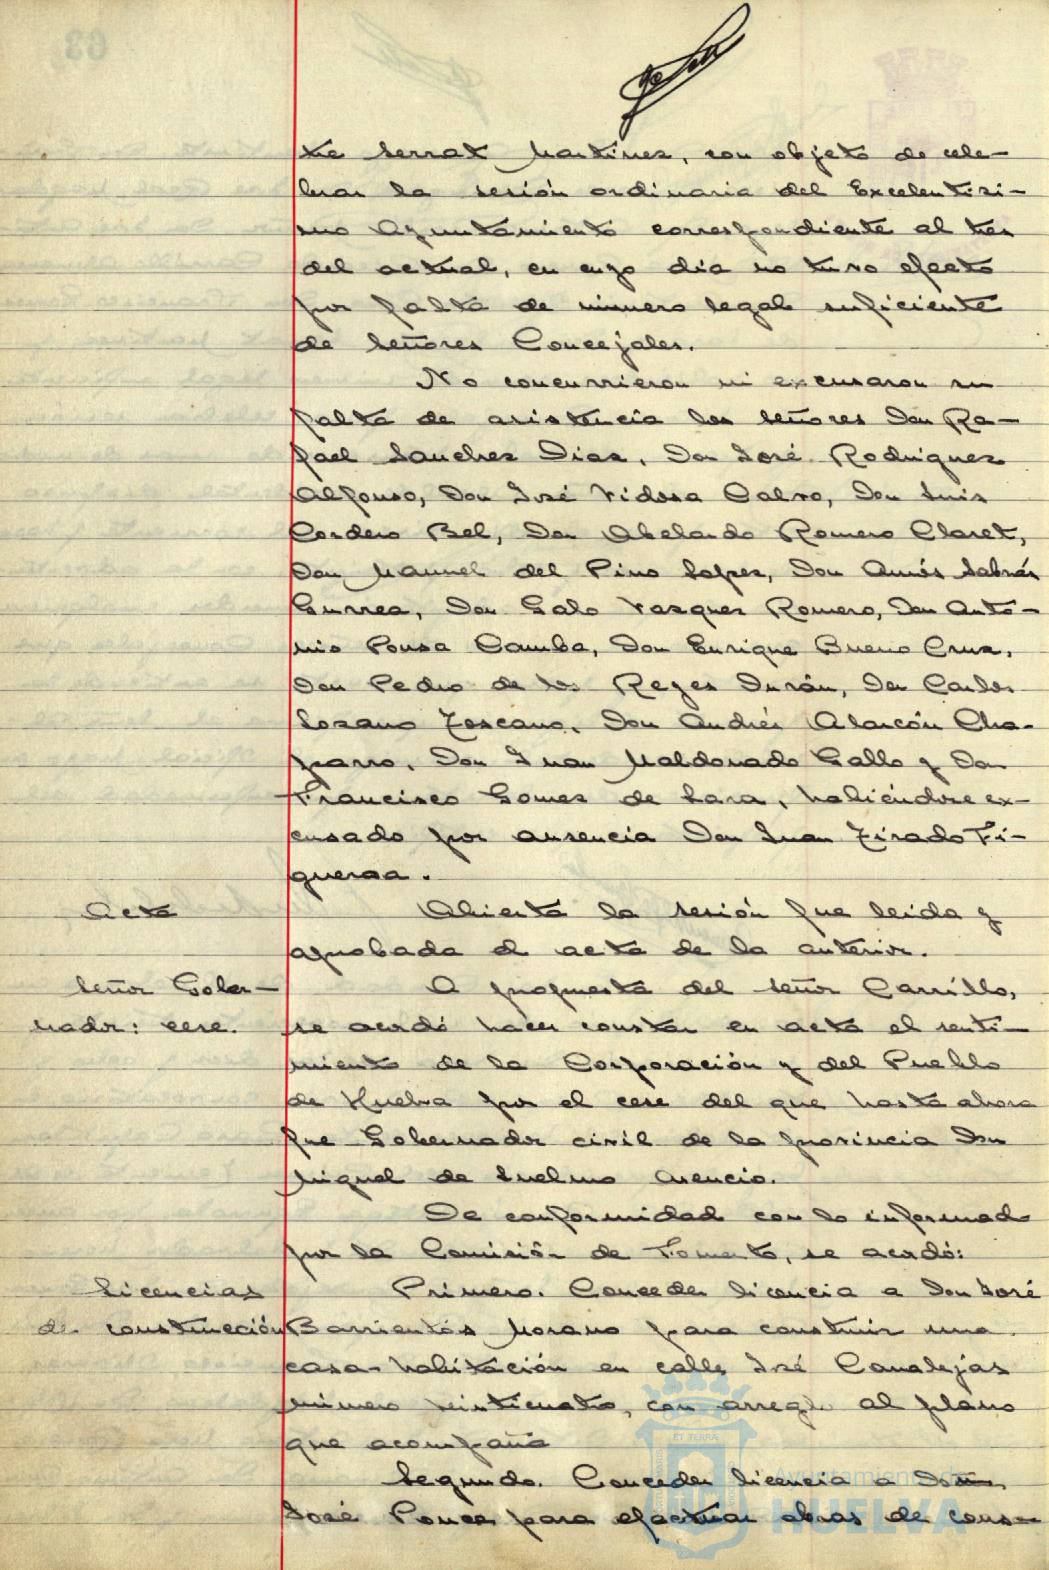 te Serrat Martínez, con objeto de cele-
brar la sesión ordinaria del Excelentísi-
mo Ayuntamiento correspondiente al tres
del actual, en cuyo día no tuvo efecto
por falta de número legal suficiente
de Señores Concejales.
No concurrieron ni excusaron su
falta de asistencia los Señores Don Ra-
fael Sanchez Diaz, Don José Rodriguez
Alfonso, Don José Vidosa Calvo, Don Luis
Cordero Bel, Don Abelardo Romero Claret,
Don Manuel del Pino Lopez, Don Amós Sabrás
Gurrea, Don Galo Vazquez Romero, Don Anto-
nio Pousa Camba, Don Enrique Bueno Cruz,
Don Pedro de los Reyes Durán, Don Carlos
Lozano Toscano, Don Andrés Alarcón Cha-
parro, Don Juan Maldonado Gallo y Don
Francisco Gomez de Lara, habiéndose ex-
cusado por ausencia Don Juan Tirado Fi-
gueroa.
Acta
Abierta la sesión fue leida y
aprobada el acta de la anterior.
Señor Gober-
nador: cese.
A propuesta del Señor Carrillo,
se acordó hacer constar en acta el senti-
miento de la Corporación y del Pueblo
de Huelva por el cese del que hasta ahora
fue Gobernador civil de la provincia Don
Miguel de Luelmo Asencio.
De conformidad con lo informado
por la Comisión de Fomento, se acordó:
Licencias
de construcción
Primero. Conceder licencia a Don José
Barrientos Morano para construir una
casa-habitación en calle José Canalejas
número veinticuatro, con arreglo al plano
que acompaña
Segundo. Conceder licencia a Don
José Ponce para efectuar obras de cons-
ET TERRÆ
Ayuntamiento de
HUELVA